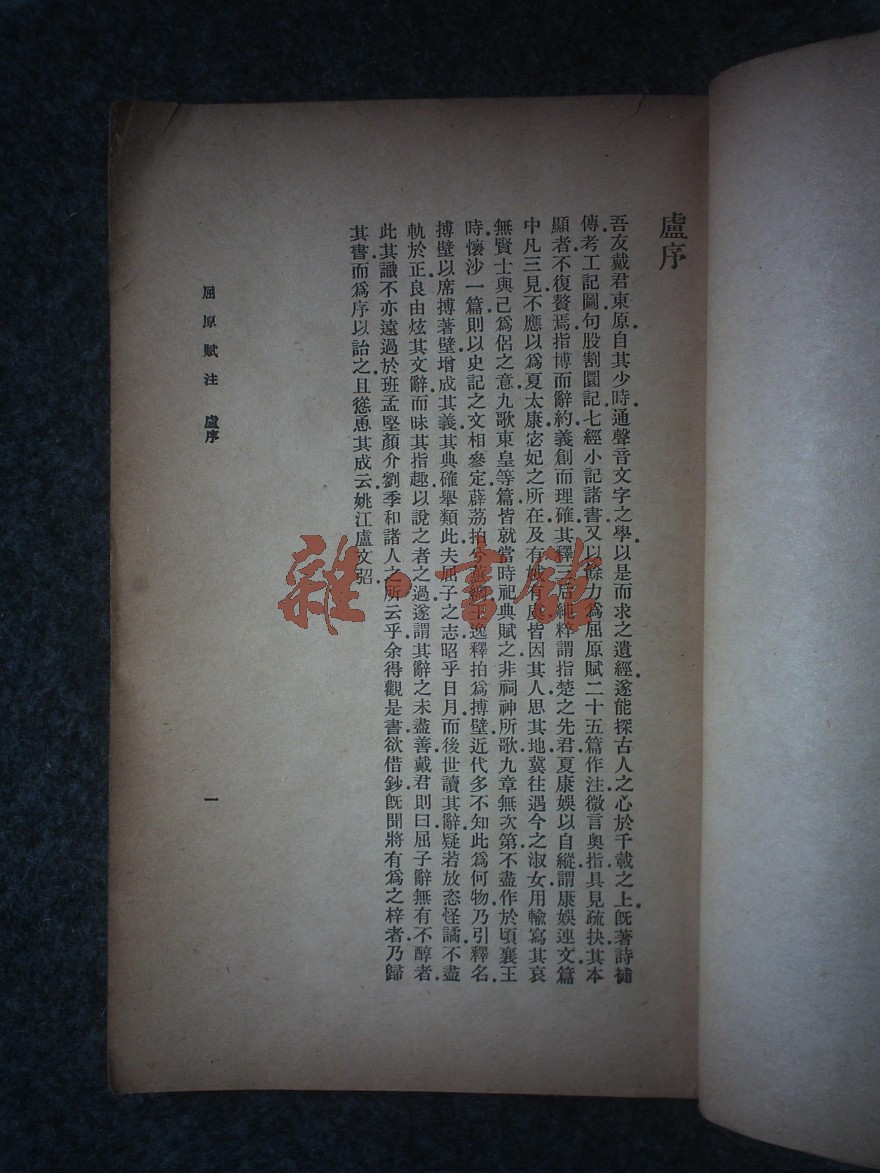 盧序
吾友戴君東原自其少時通聲音文字之學以是而求之遺經遂能探古人之心於千載之上旣著詩補
傳考工記圖句股割圜記七經小記諸書又以餘力爲屈原賦二十五篇作注微言奧指具見疏抉其本
顯者不復贅焉指博而辭約義創而理確其釋三后純粹謂指楚之先君夏康娛以自縱謂康娛連文篇
中凡三見不應以爲夏太康宓妃之所在及有娀有虞皆因其人思其地冀往遇今之淑女用輸寫其哀
無賢士與己爲侶之意九歌東皇等篇皆就當時祀典賦之非祠神所歌九章無次第不盡作於頃襄王
時懷沙一篇則以史記之文相參定薜荔拍兮蕙綢王逸釋拍爲搏壁近代多不知此爲何物乃引釋名
搏壁以席搏著壁增成其義其典確舉類此夫屈子之志昭乎日月而後世讀其辭疑若放恣怪譎不盡
軌於正良由炫其文辭而昧其指趣以說之者之過遂謂其辭之未盡善戴君則曰屈子辭無有不醇者
此其識不亦遠過於班孟堅顏介劉季和諸人之所云乎余得觀是書欲借鈔旣聞將有爲之梓者乃歸
其書而爲序以詒之且慫恿其成云姚江盧文弨
屈原賦注 盧序
一
雜·書館